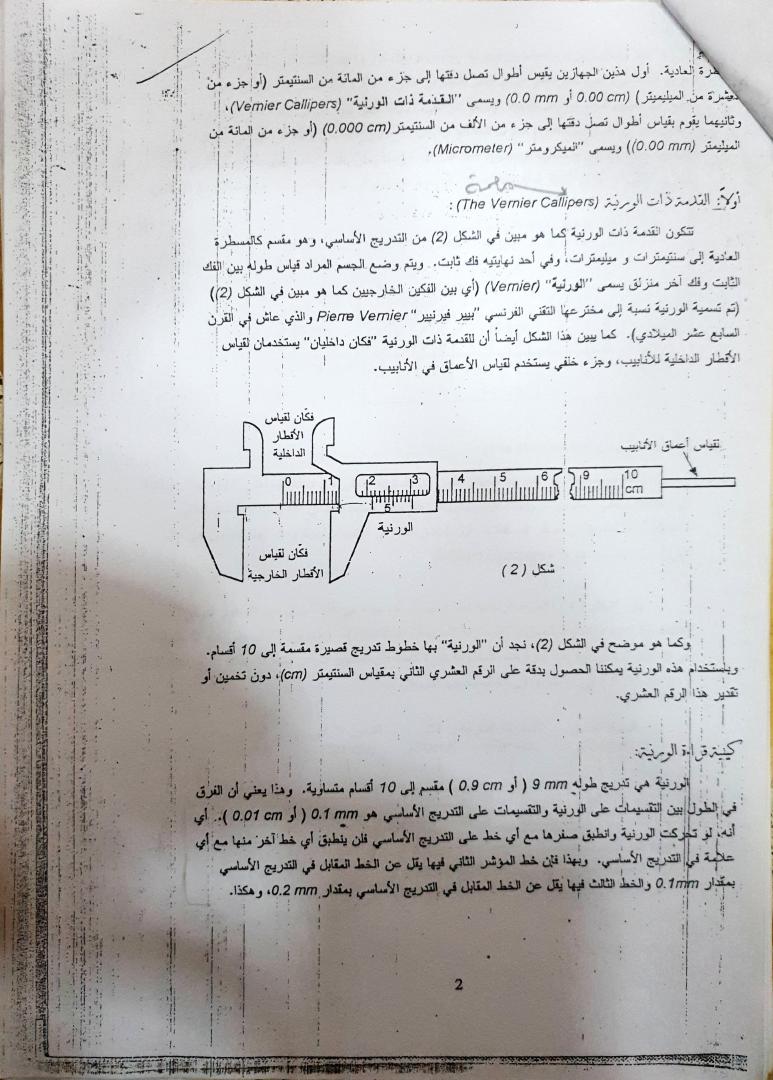 العادية. أول هذين الجهازين يقيس أطوال تصل دقتها إلى جزء من المائة من السنتيمتر (أو جزء من
العشرة من الميليميتر) (0.00 cm أو 0.0 mm) ويسمى "القدمة ذات الورنية" (Vernier Callipers)،
وثانيهما يقوم بقياس أطوال تصل دقتها إلى جزء من الألف من السنتيمتر (0.000 cm) (أو جزء من المائة من
الميليمتر (0.00 mm)) ويسمى "الميكرومتر" (Micrometer).
أولاً: القدمة ذات الورنية (The Vernier Callipers) :
تتكون القدمة ذات الورنية كما هو مبين في الشكل (2) من التدريج الأساسي، وهو مقسم كالمسطرة
العادية إلى سنتيمترات و ميليمترات، وفي أحد نهايتيه فك ثابت. ويتم وضع الجسم المراد قياس طوله بين الفك
الثابت وفك آخر منزلق يسمى "الورنية" (Vernier) (أي بين الفكين الخارجيين كما هو مبين في الشكل (2))
(تم تسمية الورنية نسبة إلى مخترعها التقني الفرنسي "بيير فيرنيير" Pierre Vernier والذي عاش في القرن
السابع عشر الميلادي). كما يبين هذا الشكل أيضاً أن للقدمة ذات الورنية "فكان داخليان" يستخدمان لقياس
الأقطار الداخلية للأنابيب، وجزء خلفي يستخدم لقياس الأعماق في الأنابيب.
فكّان لقياس
الأقطار
الداخلية
لقياس أعماق الأنابيب
0 1 2 3 4 5 6 9 10
cm
5
الورنية
فكّان لقياس
الأقطار الخارجية
شكل ( 2 )
وكما هو موضح في الشكل (2)، نجد أن "الورنية" بها خطوط تدريج قصيرة مقسمة إلى 10 أقسام.
وباستخدام هذه الورنية يمكننا الحصول بدقة على الرقم العشري الثاني بمقياس السنتيمتر (cm)، دون تخمين أو
تقدير هذا الرقم العشري.
كيفية قراءة الورنية:
الورنية هي تدريج طوله 9 mm ( أو 0.9 cm ) مقسم إلى 10 أقسام متساوية. وهذا يعني أن الفرق
في الطول بين التقسيمات على الورنية والتقسيمات على التدريج الأساسي هو 0.1 mm ( أو 0.01 cm ). أي
أنه، لو تحركت الورنية وانطبق صفرها مع أي خط على التدريج الأساسي فلن ينطبق أي خط آخر منها مع أي
علامة في التدريج الأساسي. وبهذا فإن خط المؤشر الثاني فيها يقل عن الخط المقابل في التدريج الأساسي
بمقدار 0.1mm والخط الثالث فيها يقل عن الخط المقابل في التدريج الأساسي بمقدار 0.2 mm، وهكذا.
2